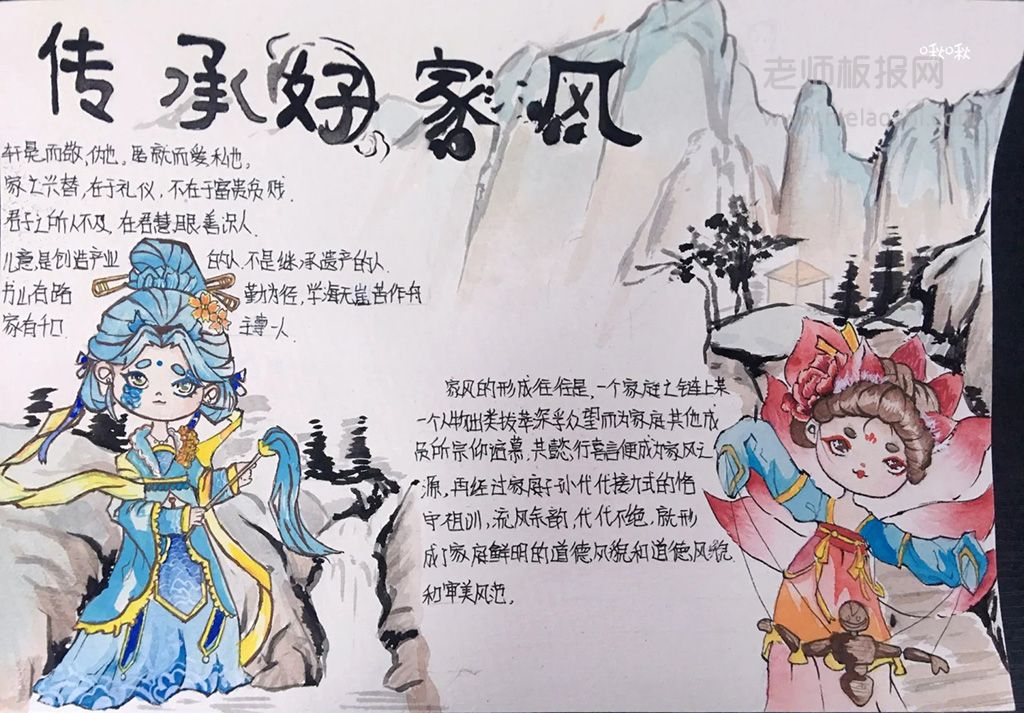 传承好家风
啾啾
老师板报网
轩昂而敬仇也,因就而爱私也,
家之兴替,在于礼仪,不在于富贵贫贱.
君子之所以不及,在君慧眼善识人.
儿意,是创造产业的人.不是继承遗产的人.
书山有路勤为径,学海无崖苦作舟
家有千口主尊一人.
家风的形成往往是,一个家庭之链上某
一个人物出类拔萃深孚众望而为家庭其他成
员所宗仰追慕,其懿行嘉言便成为家风之
源,再经过家庭子孙代代接力式的恪
守祖训,流风余韵,代代不绝,就形
成了家庭鲜明的道德风貌和道德风貌
和审美风范.